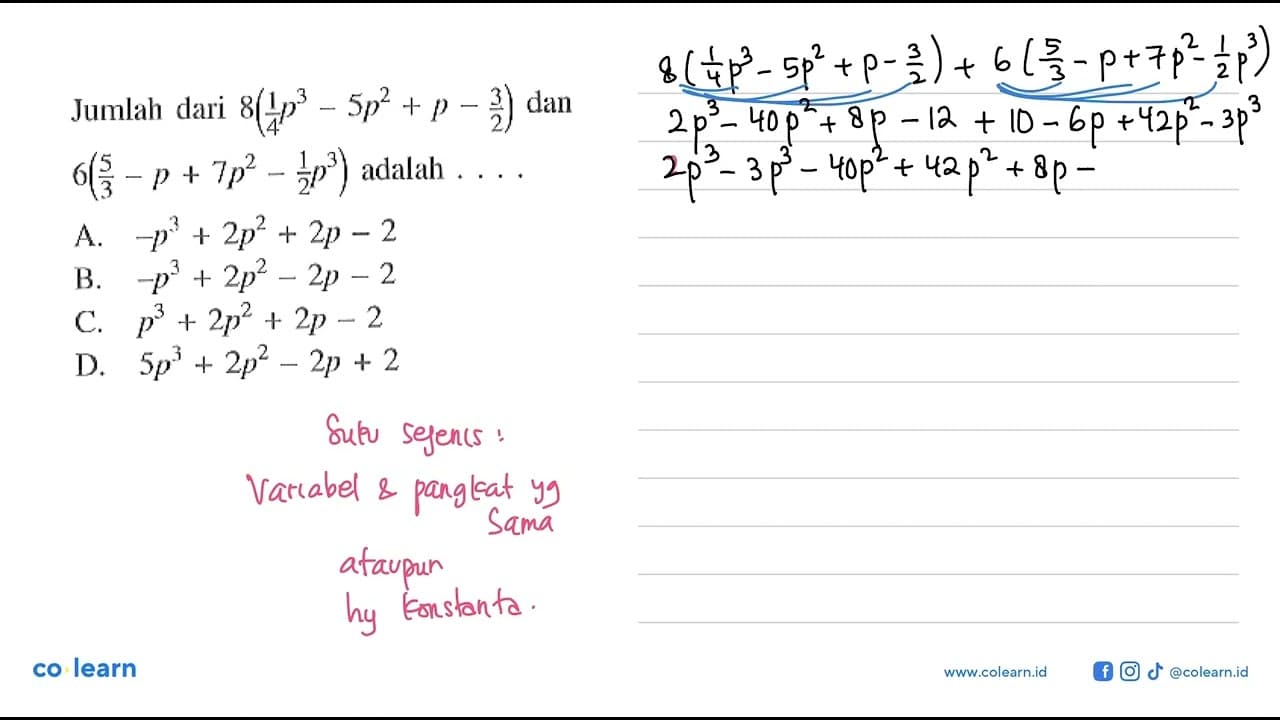 Jumlah dari 8(1/4 p³ – 5p² + p – 3/2) dan
6(5/3 – p + 7p² – 1/2 p³) adalah . . . .
A. –p³ + 2p² + 2p – 2
B. –p³ + 2p² – 2p – 2
C. p³ + 2p² + 2p – 2
D. 5p³ + 2p² – 2p + 2
Suku sejenis :
Variabel & pangkat yg
Sama
ataupun
hy konstanta.
8(1/4 p³ – 5p² + p – 3/2) + 6(5/3 – p + 7p² – 1/2 p³)
2p³ – 40p² + 8p – 12 + 10 – 6p + 42p² – 3p³
2p³ – 3p³ – 40p² + 42p² + 8p –
co learn
www.colearn.id
@colearn.id